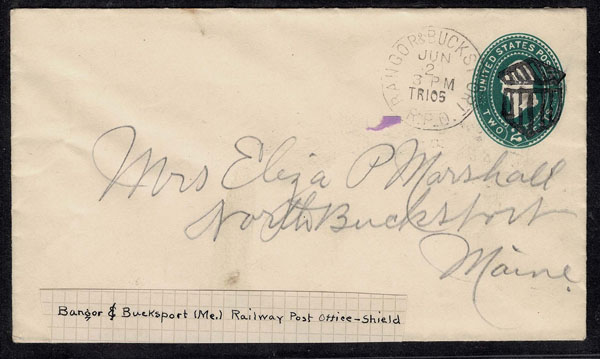 BANGOR & BUCKSPORT
JUN
2
3 PM
TR105
R.P.O.
UNITED STATES POS
TWO
2
Mrs Eliza P Marshall
North Bucksport
Maine.
Bangor & Bucksport (Me.) Railway Post Office-Shield